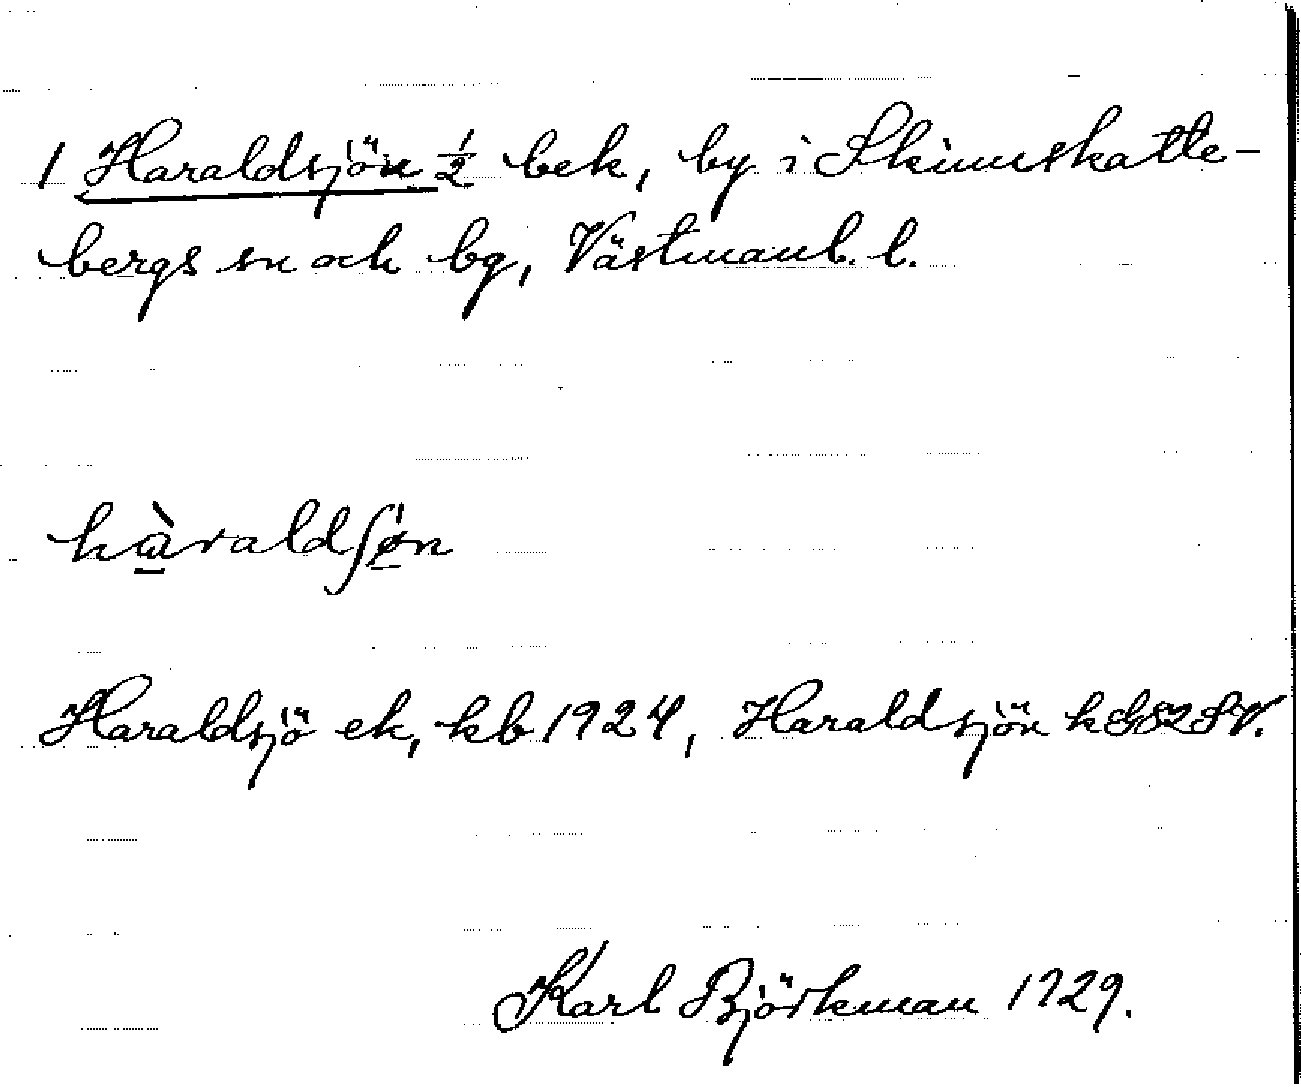 1 Haraldsjön ½ bek, by i Skinnskatte-
bergs sn och bg, Västmanl. l.
hàraldʃøn
Haraldsjö ek, kb 1924, Haraldsjön k
Karl Björkman 1929.